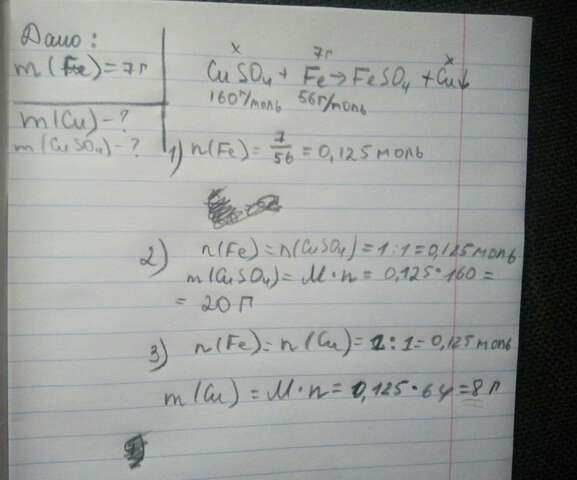 Дано:
m(Fe)=7г
m(Cu)-?
m(CuSO₄)-?
x 7г x
CuSO₄ + Fe → FeSO₄ + Cu↓
160г/моль 56г/моль
1) n(Fe) = 7/56 = 0,125 моль
2) n(Fe)=n(CuSO₄)=1:1=0,125моль
m(CuSO₄)= M·n = 0,125·160 =
= 20 г
3) n(Fe)=n(Cu)=1:1=0,125моль
m(Cu) = M·n = 0,125·64 =8 г